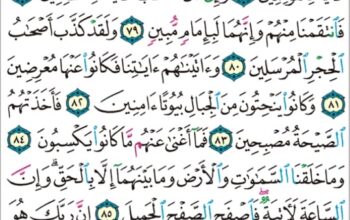 فَٱنتَقَمْنَا مِنْهُمْ وَإِنَّهُمَا لَبِإِمَامٍ مُّبِينٍ ٧٩ وَلَقَدْ كَذَّبَ أَصْحَٰبُ
ٱلْحِجْرِ ٱلْمُرْسَلِينَ ٨٠ وَءَاتَيْنَٰهُمْ ءَايَٰتِنَا فَكَانُوا۟ عَنْهَا مُعْرِضِينَ
٨١ وَكَانُوا۟ يَنْحِتُونَ مِنَ ٱلْجِبَالِ بُيُوتًا ءَامِنِينَ ٨٢ فَأَخَذَتْهُمُ
ٱلصَّيْحَةُ مُصْبِحِينَ ٨٣ فَمَآ أَغْنَىٰ عَنْهُم مَّا كَانُوا۟ يَكْسِبُونَ ٨٤
وَمَا خَلَقْنَا ٱلسَّمَٰوَٰتِ وَٱلْأَرْضَ وَمَا بَيْنَهُمَآ إِلَّا بِٱلْحَقِّ ۗ وَإِنَّ
ٱلسَّاعَةَ لَءَاتِيَةٌ ۖ فَٱصْفَحِ ٱلصَّفْحَ ٱلْجَمِيلَ ٨٥ إِنَّ رَبَّكَ هُوَ